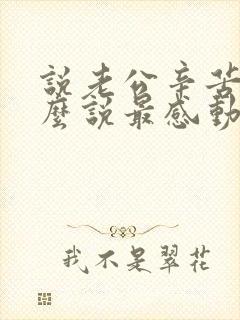 說老公辛苦
麼說最感動
我不是翠花